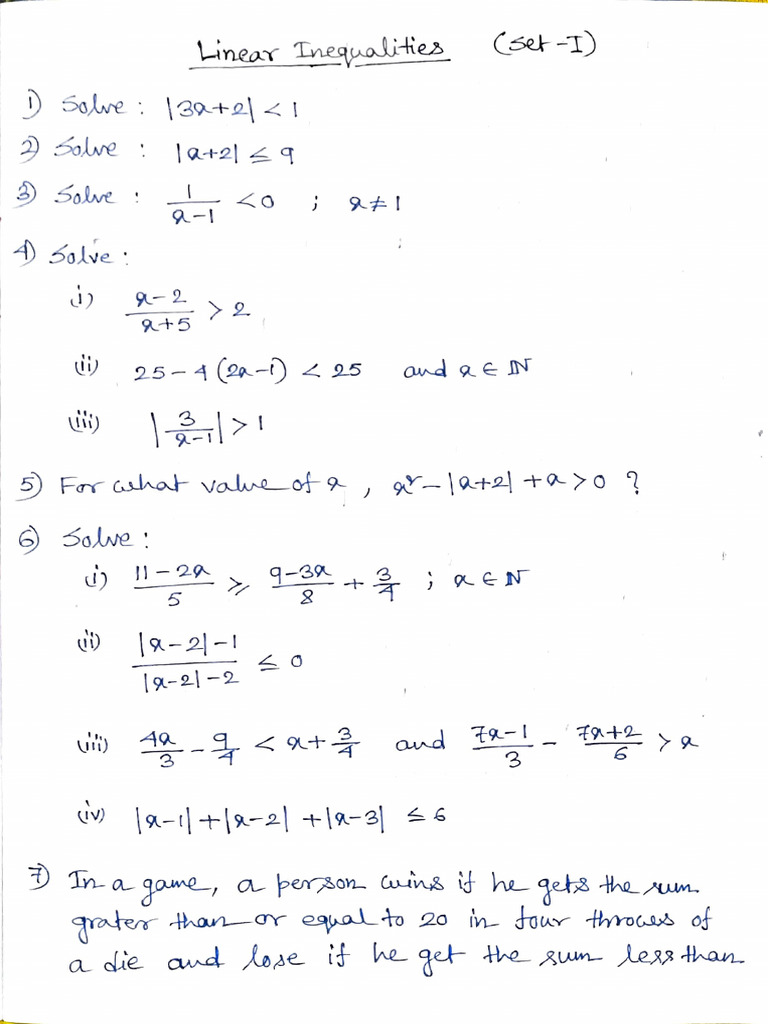 Linear Inequalities (Set-I)
1) Solve : |3x+2| < 1
2) Solve : |x+2| ≤ 9
3) Solve : 1/(x-1) < 0 ; x ≠ 1
4) Solve :
i) (x-2)/(x+5) > 2
(ii) 25 - 4(2x-1) < 25 and x ∈ ℕ
(iii) |3/(x-1)| > 1
5) For what value of x, x² - |x+2| + x > 0 ?
6) Solve :
i) (11-2x)/5 ≥ (9-3x)/8 + 3/4 ; x ∈ ℕ
(ii) (|x-2|-1)/(|x-2|-2) ≤ 0
(iii) 4x/3 - 9/4 < x + 3/4 and (7x-1)/3 - (7x+2)/6 > x
(iv) |x-1| + |x-2| + |x-3| ≤ 6
7) In a game, a person wins if he gets the sum
grater than or equal to 20 in four throws of
a die and lose if he get the sum less than